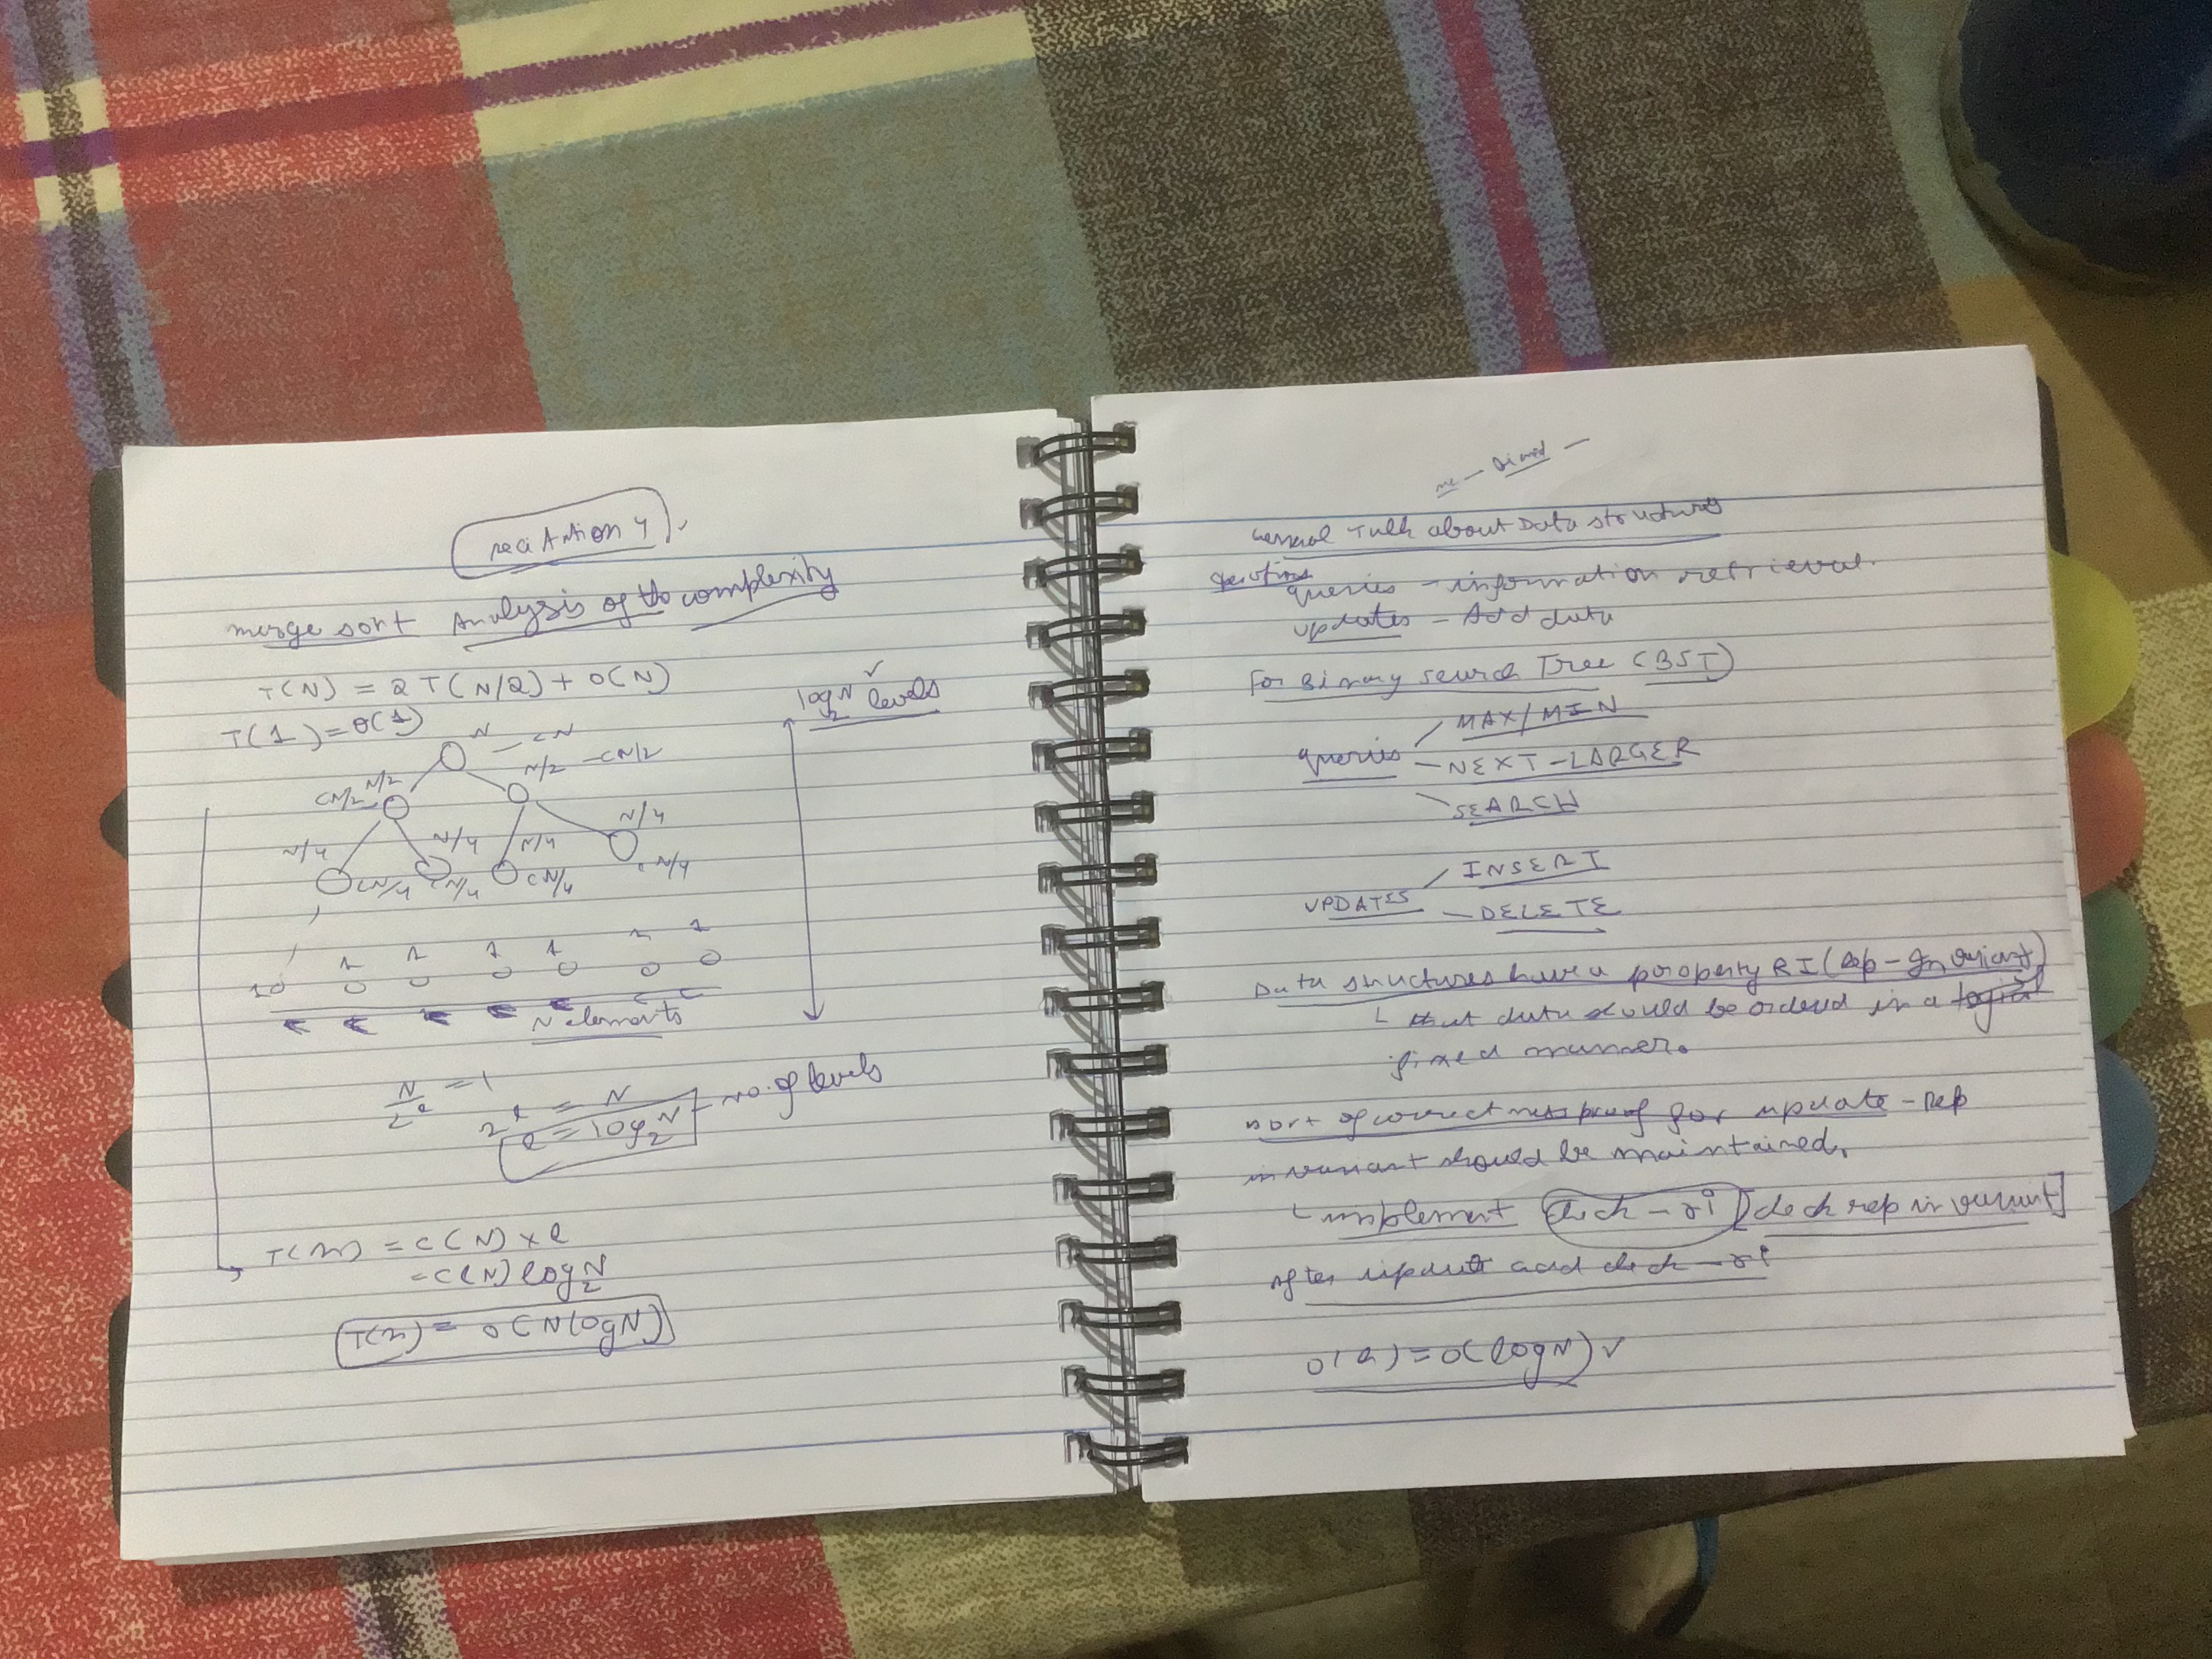 recitation 4
merge sort Analysis of the complexity
T(N) = 2 T(N/2) + O(N)
T(1) = O(1)
log₂N levels
N - CN
CN/2 N/2
N/2 - CN/2
N/4 N/4 N/4 N/4
CN/4 CN/4 CN/4 CN/4
1 1 1 1 1 1 1
C C
N elements
N/2^l = 1
2^l = N
l = log₂N - no. of levels
T(n) = C(N) x l
= C(N) log₂N
T(n) = O(N log N)
General Talk about Data structures
queries - information retrieval.
updates - Add data
For Binary Search Tree (BST)
queries - MAX/MIN
- NEXT-LARGER
- SEARCH
UPDATES - INSERT
- DELETE
Data structures have a property RI (Rep-Invariant)
that data should be ordered in a logical
fixed manner.
sort of correctness proof for update - rep
invariant should be maintained.
implement check-ri [check rep invariant]
after update add check-ri
O(h) = O(log N)